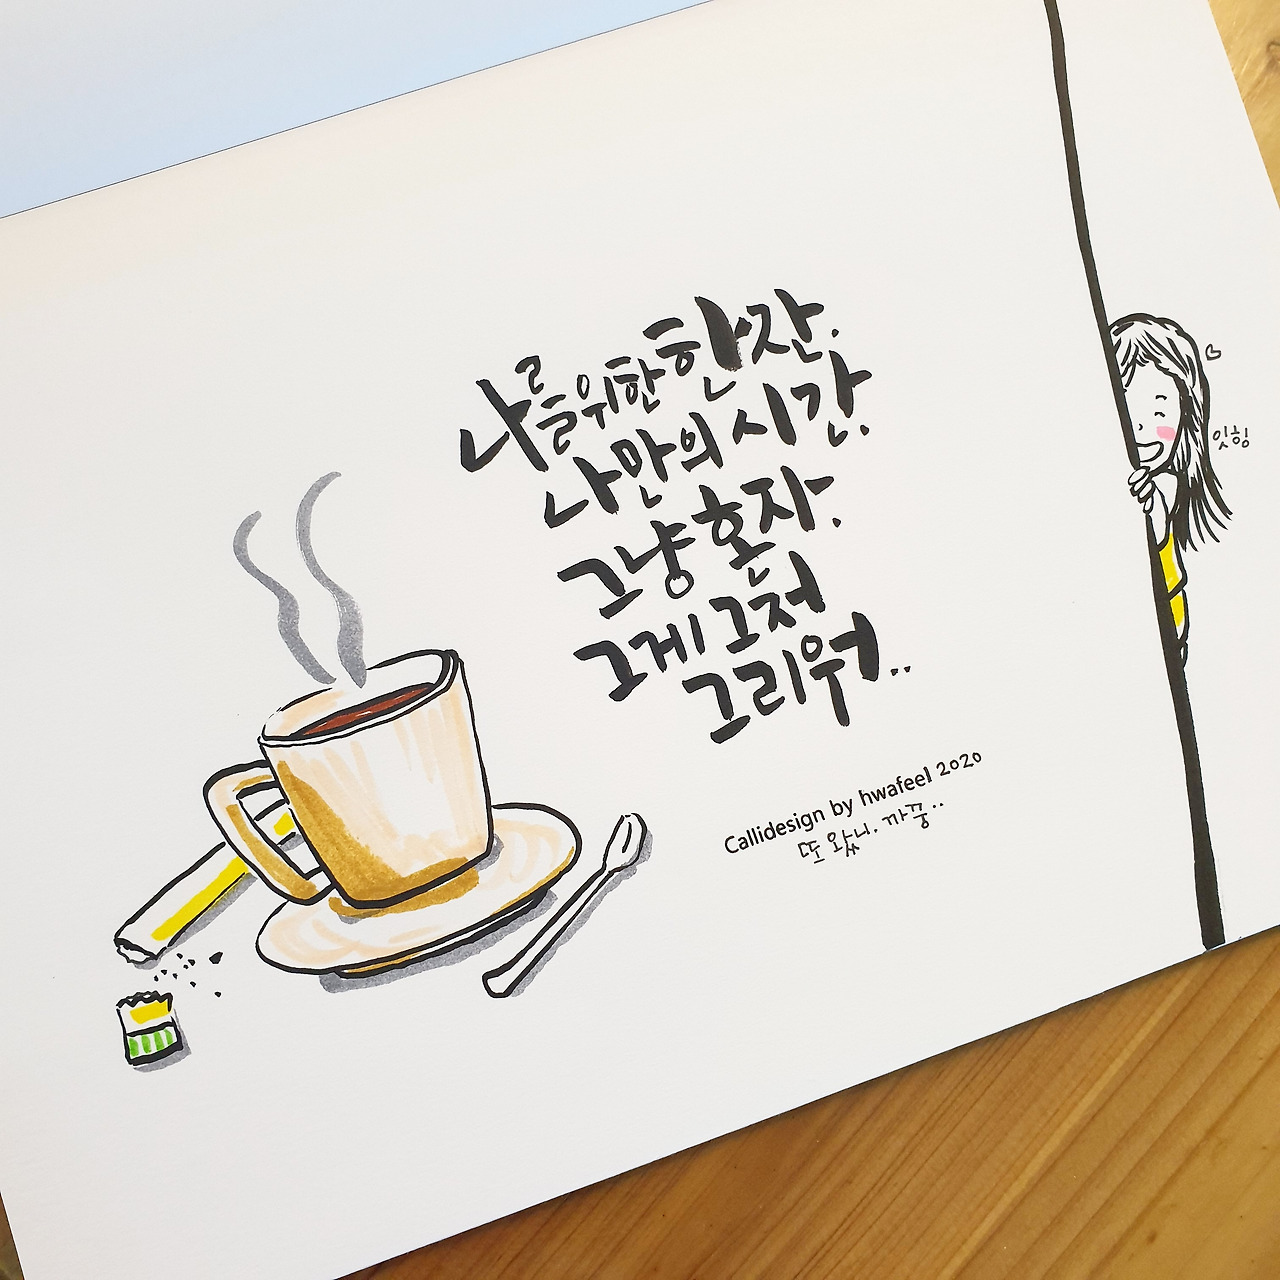 나를 위한 한잔.
나만의 시간.
그냥 혼자.
그게 그저
그리워..
Callidesign by hwafeel 2020
또 왔니. 까꿍..
잇힝